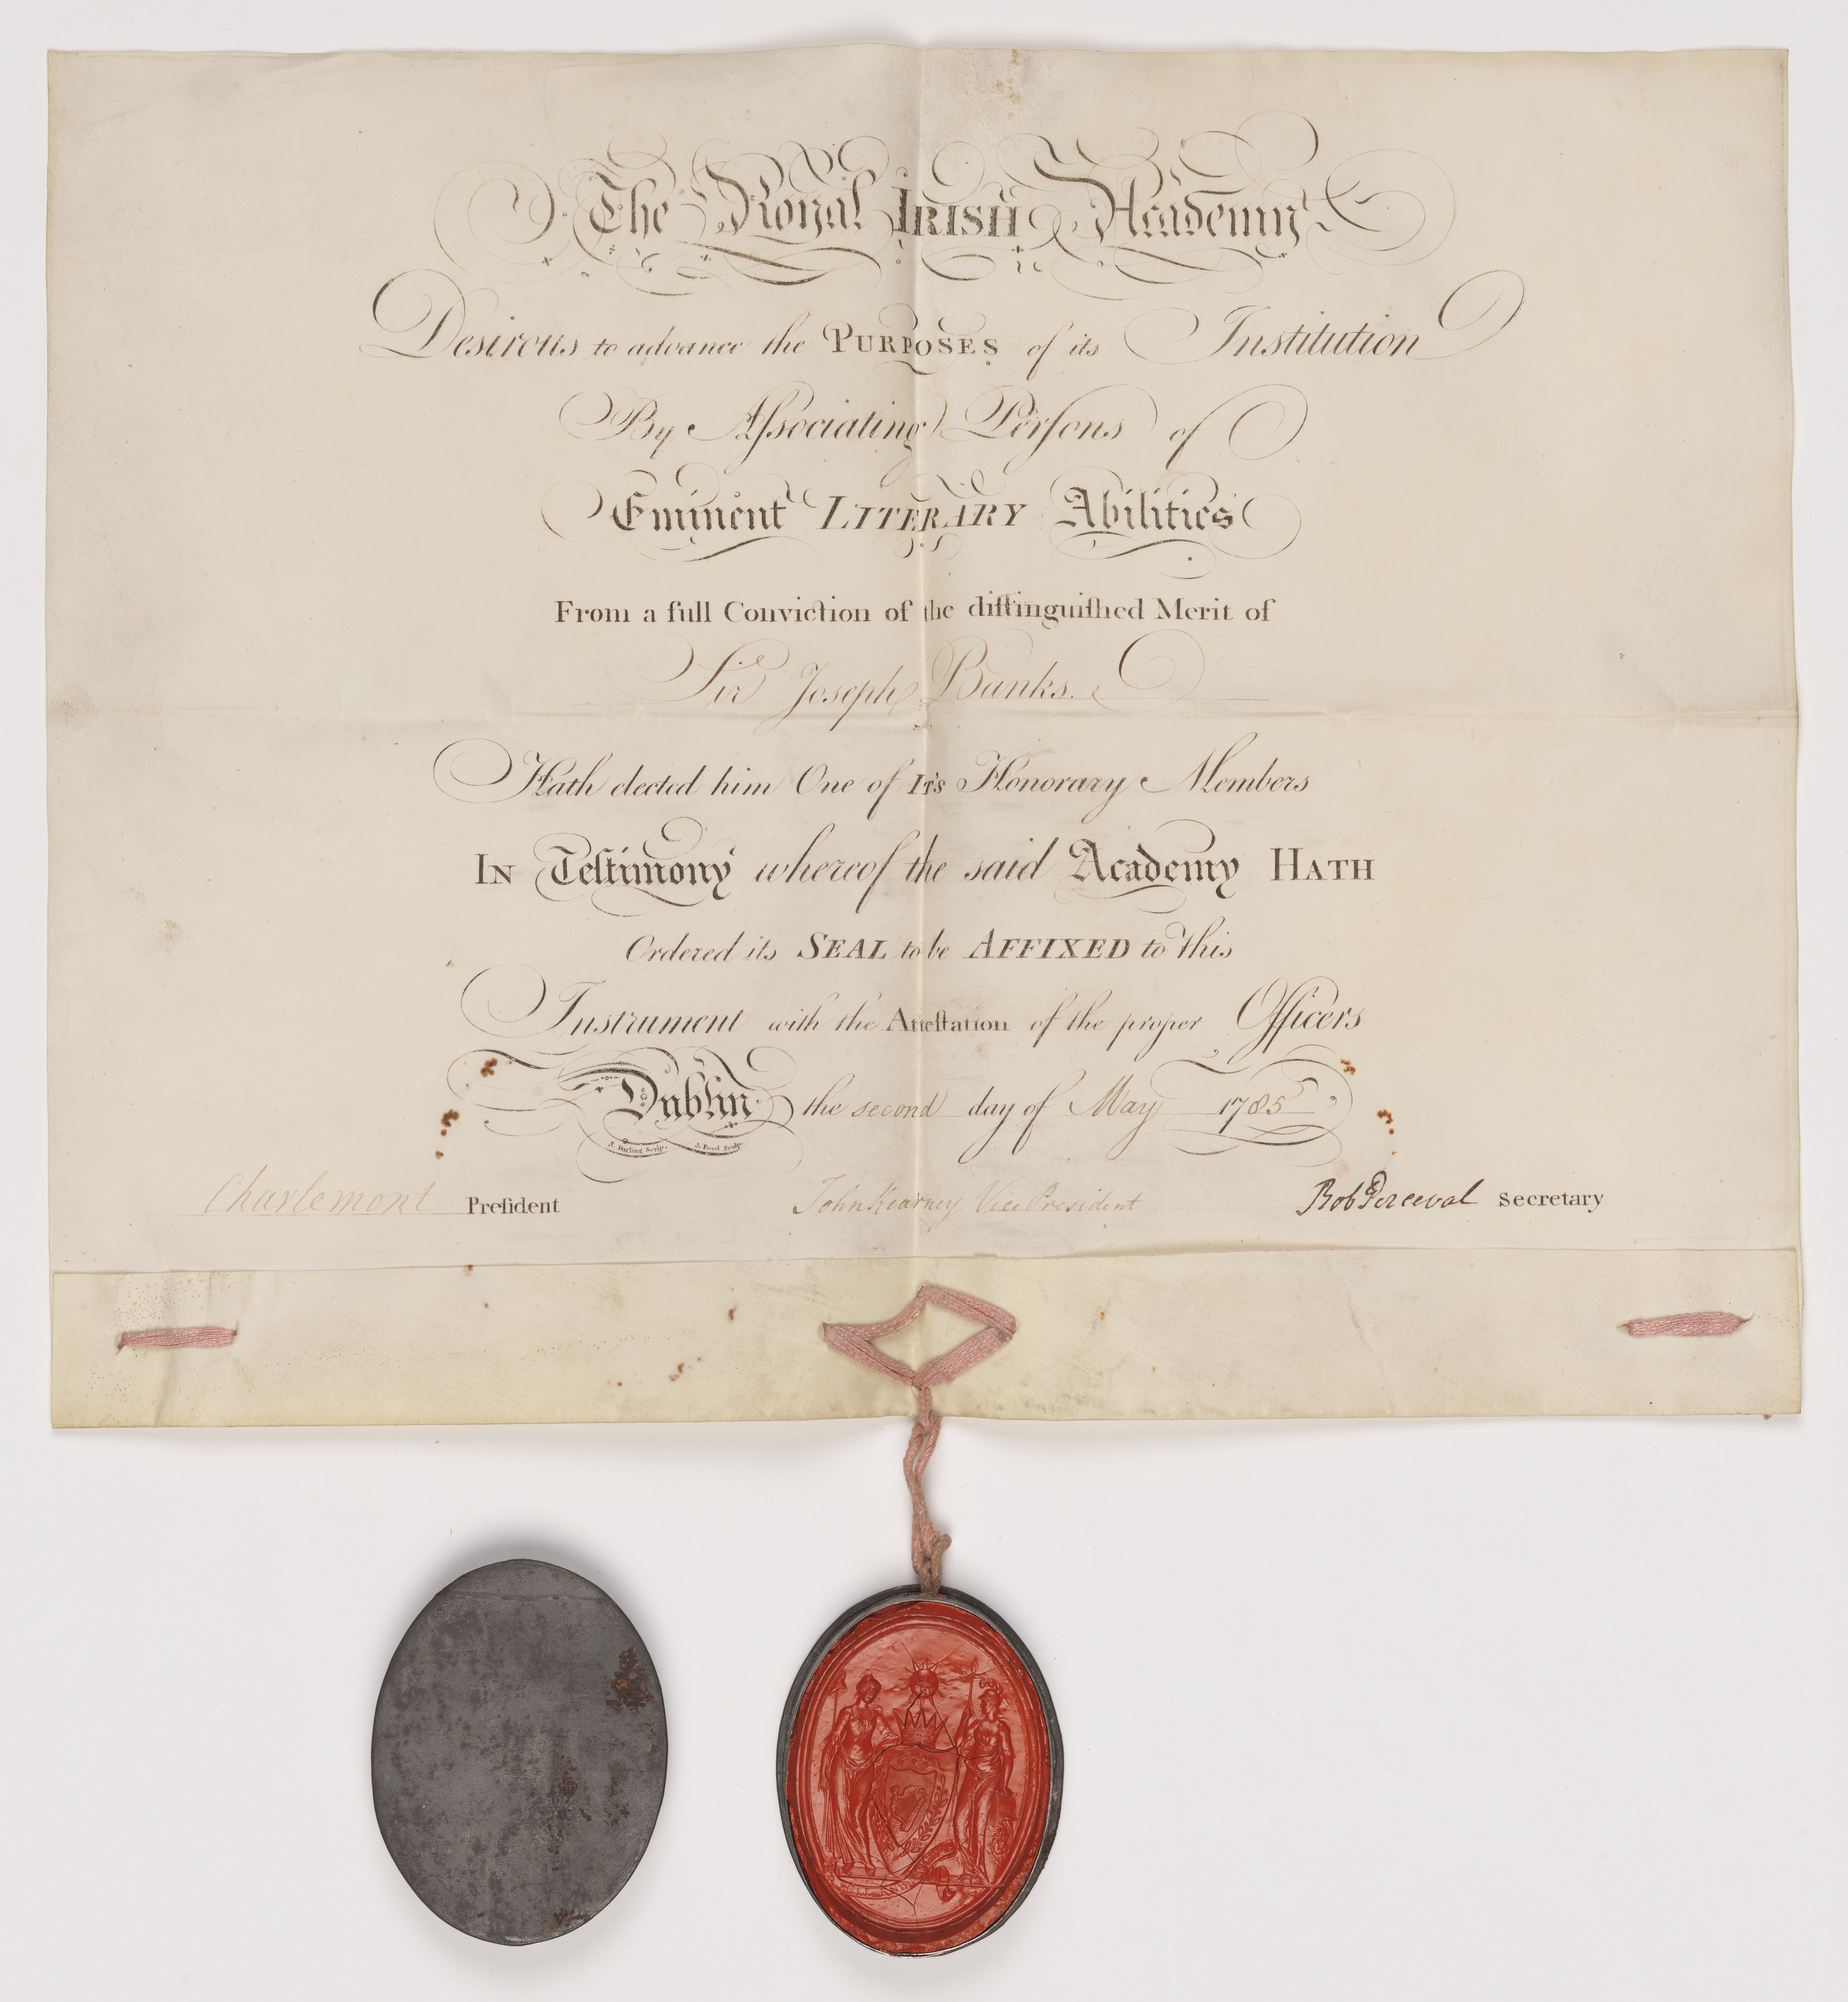 The Royal IRISH Academy
Desirous to advance the PURPOSES of its Institution
By Aſsociating Perſons of
Eminent LITERARY Abilities
From a full Conviction of the diſtinguiſhed Merit of
Sir Joseph Banks.
Hath elected him One of ITS Honorary Members
IN Teſtimony whereof the said Academy HATH
Ordered its SEAL to be AFFIXED to this
Instrument with the Atteſtation of the proper Officers
Dublin the second day of May 1785
S. Darling Scrip. J. Ford Sculp.
Charlemont Preſident John Kearney Vice President Rob Perceval Secretary